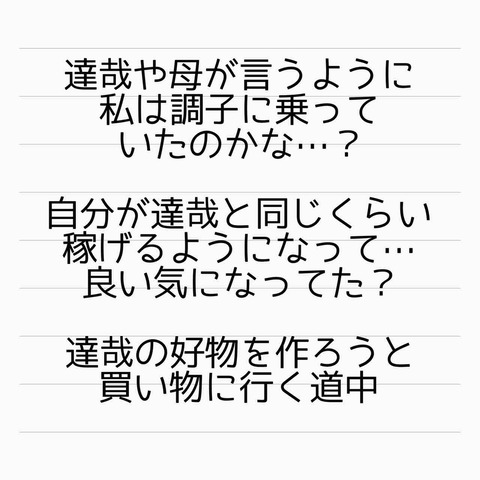 達哉や母が言うように
私は調子に乗って
いたのかな…？
自分が達哉と同じくらい
稼げるようになって…
良い気になってた？
達哉の好物を作ろうと
買い物に行く道中